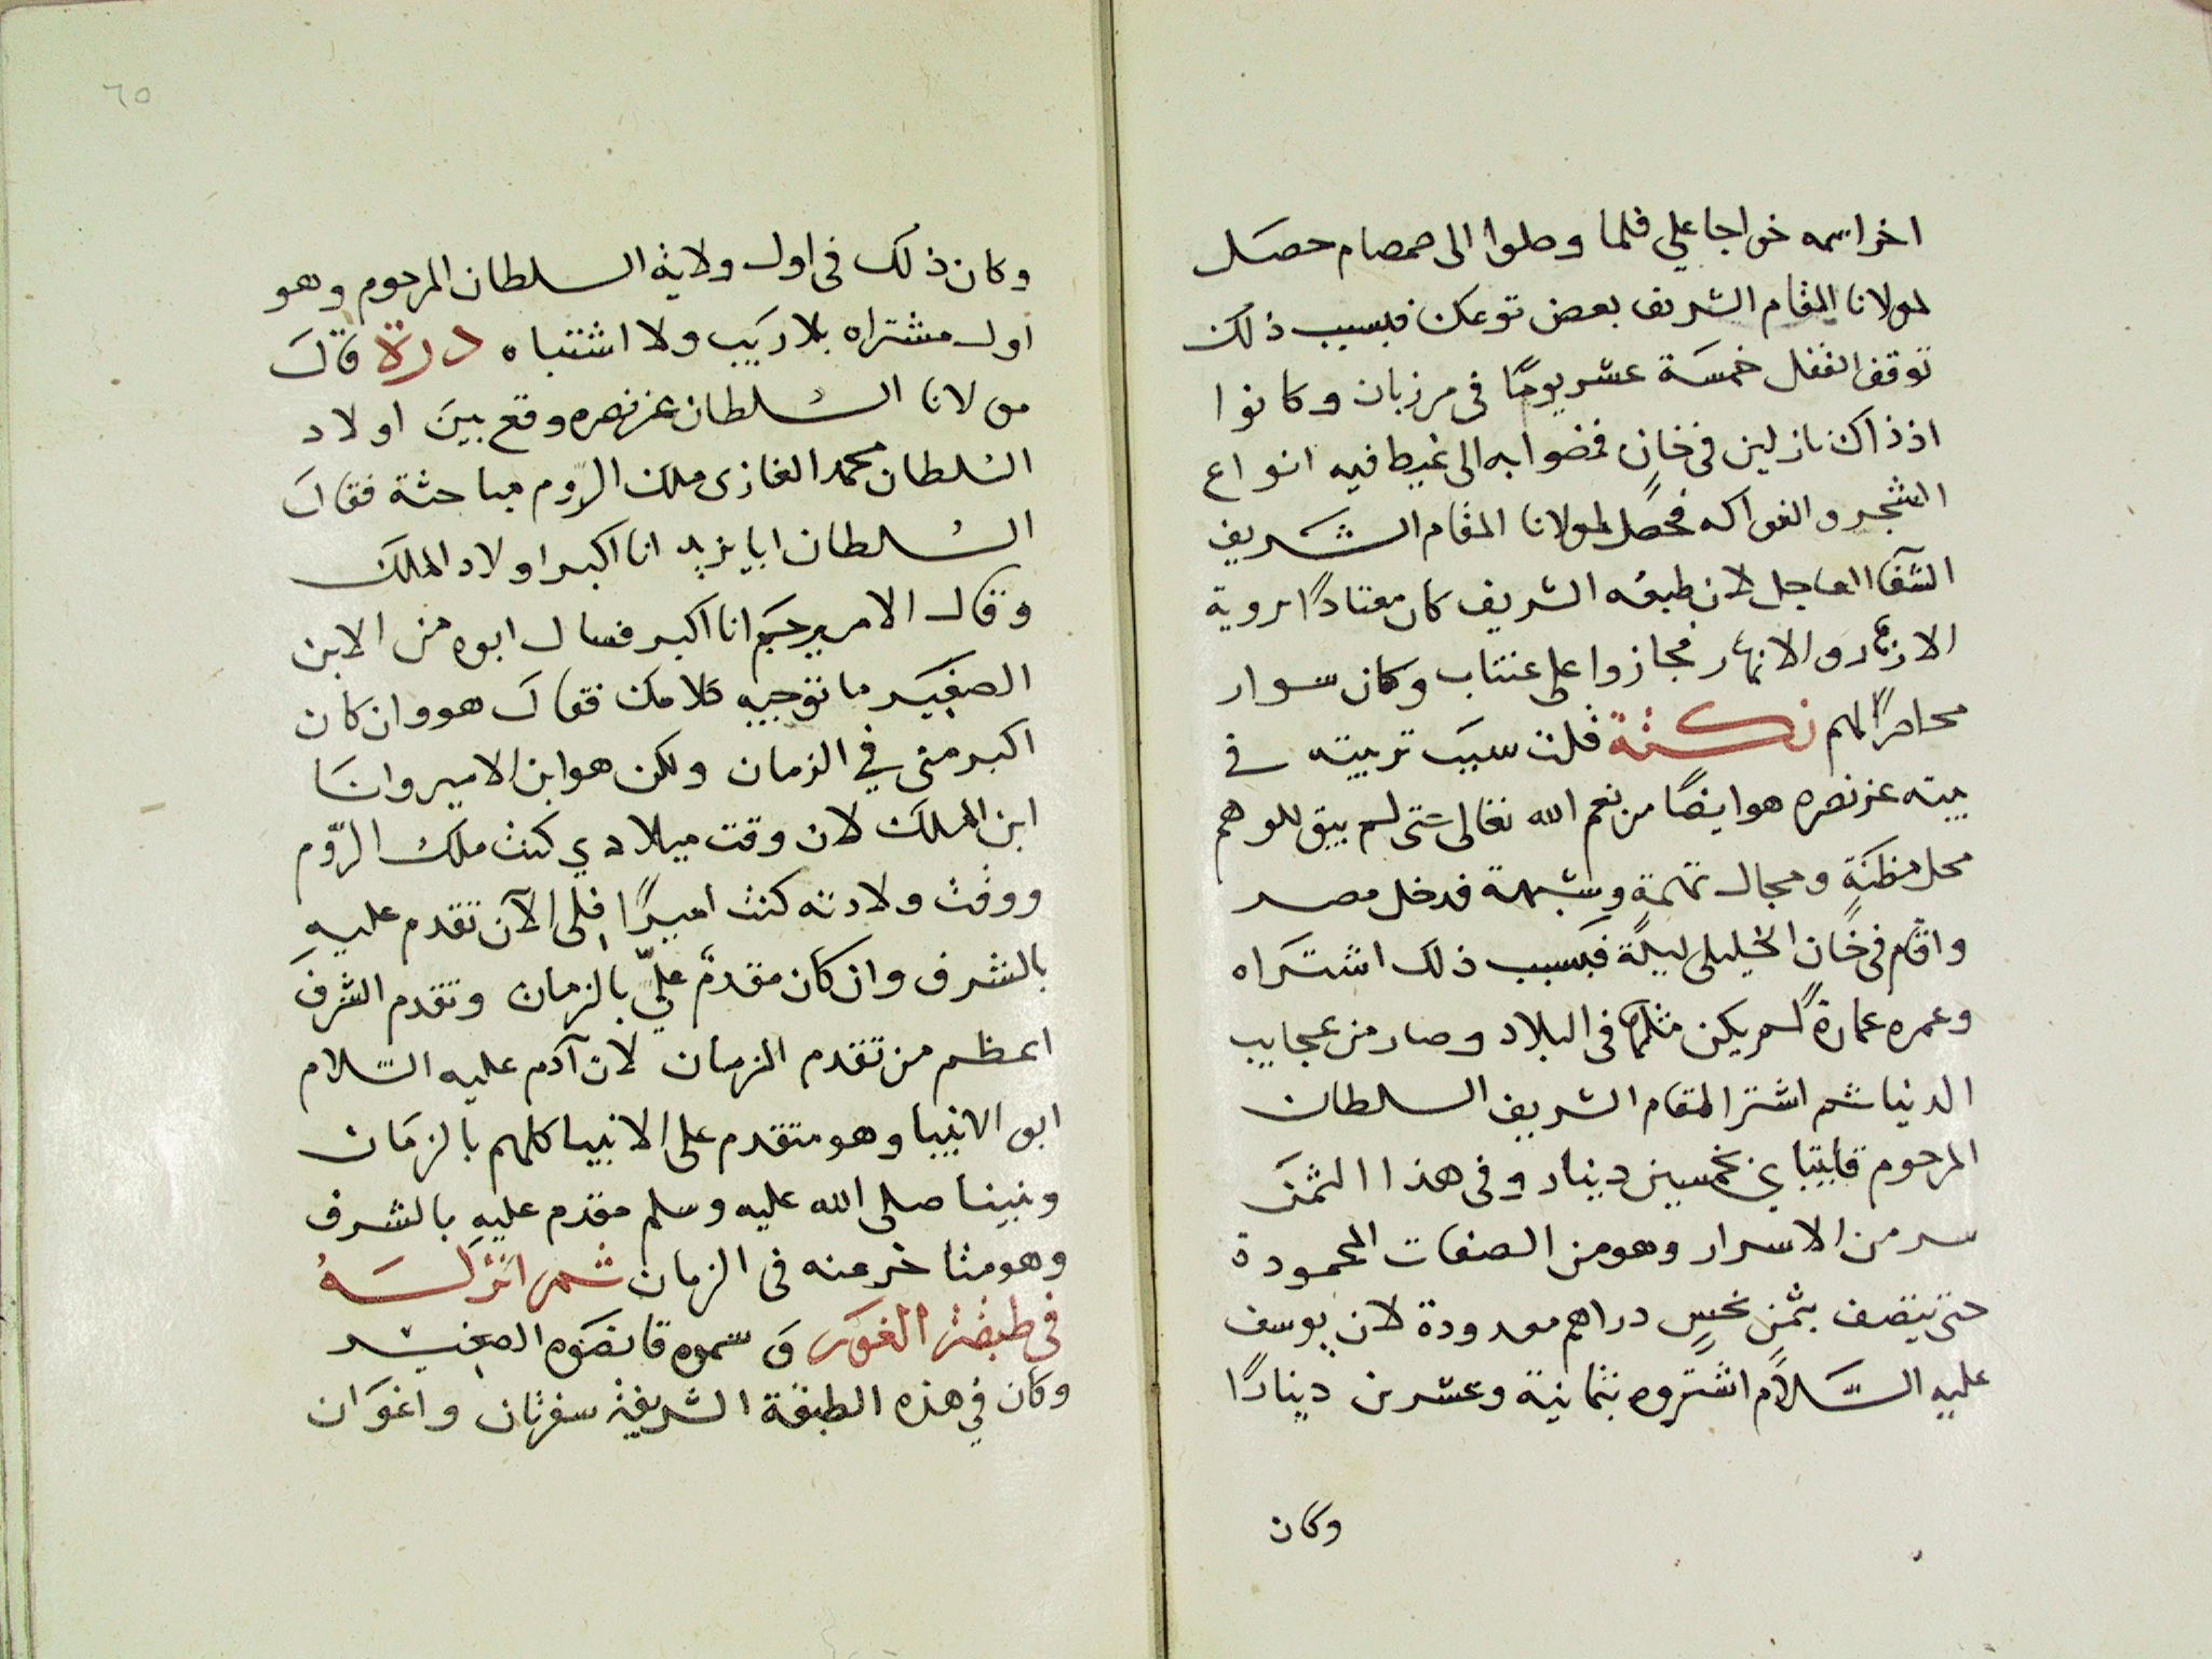 اخر اسمه خواجا علي فلما وصلوا الى صمصام حصل
لمولانا المقام الشريف بعض توعك فبسبب ذلك
توقف القفل خمسة عشر يومًا فى مرزبان وكانوا
اذ ذاك نازلين فى خانٍ فمضوا به الى غيط فيه انواع
الشجر والفواكه فحصل لمولانا المقام الشريف
الشفا العاجل لان طبعه الشريف كان معتادًا بروية
الازهار والانهار فجازوا على عنتاب وكان سوار
محاصرًا لهم نكتة قلت سبب تربيته فى
بيته عز نصره هو ايضًا من نعم الله تعالى حتى لم يبق للوهم
محل مظنةٍ ومجال تهمةٍ وشبهة فدخل مصر
واقام فى خان الخليلى ليلة فبسبب ذلك اشتراه
وعمره عمارةً لم يكن مثلها فى البلاد وصار من عجايب
الدنيا ثم اشترا المقام الشريف السلطان
المرحوم قايتباي بخمسين دينار وفى هذا الثمن
سر من الاسرار وهو من الصفات المحمودة
حتى يتصف بثمنٍ بخسٍ دراهم معدودة لان يوسف
عليه السلام اشتروه بثمانية وعشرين دينارًا
وكان
٦٥
وكان ذلك فى اول ولاية السلطان المرحوم وهو
اول مشتراه بلا ريب ولا اشتباه درة قال
مولانا السلطان عز نصره وقع بين اولاد
السلطان محمد الغازى ملك الروم مباحثة فقال
السلطان ابايزيد انا اكبر اولاد الملك
وقال الامير جم انا اكبر فسال ابوه من الابن
الصغير ما توجيه كلامك فقال هو وان كان
اكبر منى في الزمان ولكن هو ابن الامير وانا
ابن الملك لان وقت ميلادي كنت ملك الرّوم
ووقت ولادته كنت اميرًا فلى الآن تقدم عليه
بالشرف وان كان مقدمٌ عليّ بالزمان وتقدم الشرف
اعظم من تقدم الزمان لان آدم عليه السّلام
ابو الانبيا وهو متقدم على الانبيا كلهم بالزمان
ونبينا صلى الله عليه وسلم مقدم عليهِ بالشرف
وهو متاخر عنه فى الزمان ثم انزلهُ
فى طبقة الغور وسموه قانصوه الصغير
وكان في هذه الطبقة الشريفة سفرتان واغوان